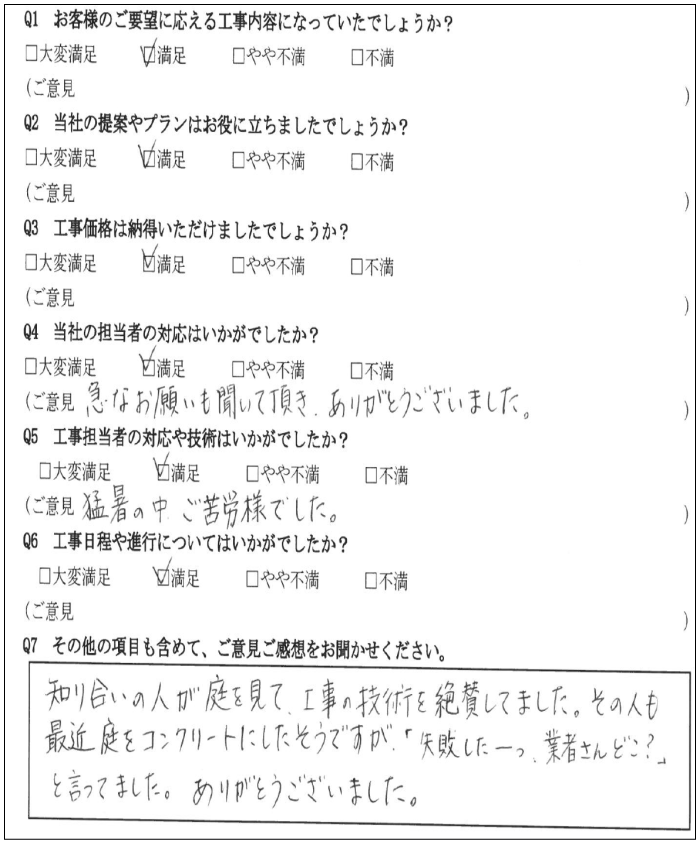 Q1 お客様のご要望に応える工事内容になっていたでしょうか？
□大変満足 ☑満足 □やや不満 □不満
(ご意見 )
Q2 当社の提案やプランはお役に立ちましたでしょうか？
□大変満足 ☑満足 □やや不満 □不満
(ご意見 )
Q3 工事価格は納得いただけましたでしょうか？
□大変満足 ☑満足 □やや不満 □不満
(ご意見 )
Q4 当社の担当者の対応はいかがでしたか？
□大変満足 ☑満足 □やや不満 □不満
(ご意見 急なお願いも聞いて頂き、ありがとうございました。 )
Q5 工事担当者の対応や技術はいかがでしたか？
□大変満足 ☑満足 □やや不満 □不満
(ご意見 猛暑の中、ご苦労様でした。 )
Q6 工事日程や進行についてはいかがでしたか？
□大変満足 ☑満足 □やや不満 □不満
(ご意見 )
Q7 その他の項目も含めて、ご意見ご感想をお聞かせください。
知り合いの人が庭を見て、工事の技術を絶賛してました。その人も
最近庭をコンクリートにしたそうですが、「失敗したーっ、業者さんどこ？」
と言ってました。ありがとうございました。